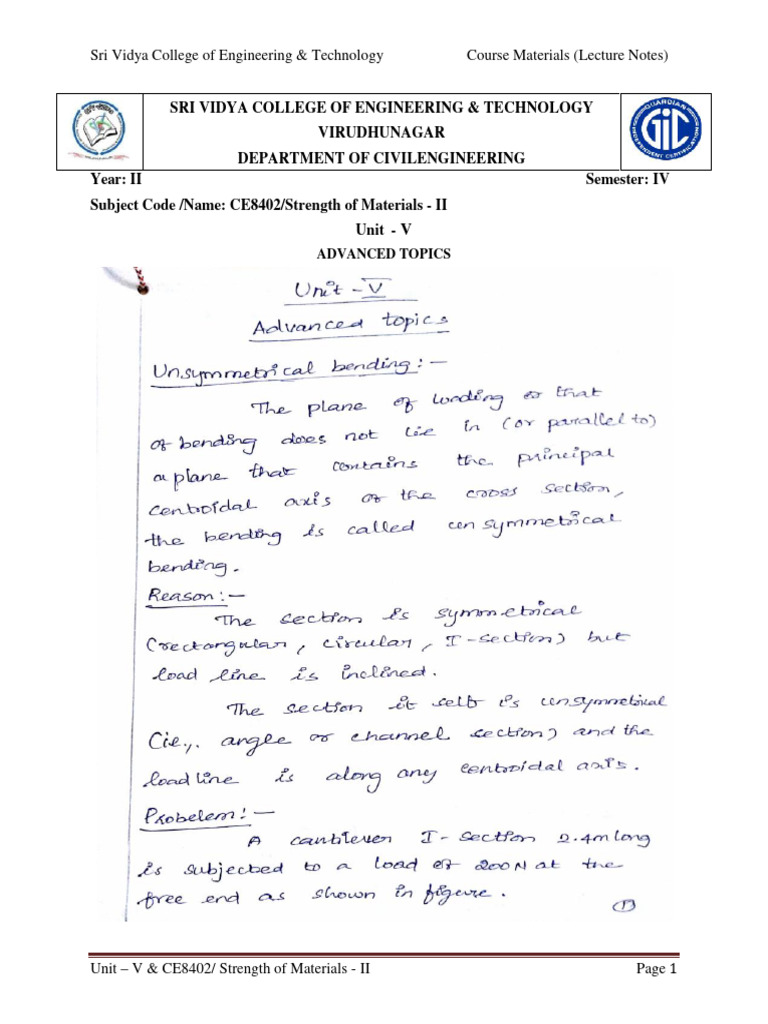 Sri Vidya College of Engineering & Technology Course Materials (Lecture Notes)
SRI VIDYA COLLEGE OF ENGINEERING & TECHNOLOGY
VIRUDHUNAGAR
DEPARTMENT OF CIVILENGINEERING
GUARDIAN
GIC
INDEPENDENT CERTIFICATION
Year: II Semester: IV
Subject Code /Name: CE8402/Strength of Materials - II
Unit - V
ADVANCED TOPICS
Unit - V
Advanced topics
Unsymmetrical bending:-
The plane of loading or that
of bending does not lie in (or parallel to)
a plane that contains the principal
centroidal axis of the cross section,
the bending is called unsymmetrical
bending.
Reason:-
The section is symmetrical
(rectangular, circular, I-section) but
load line is inclined.
The section it self is unsymmetrical
(ie,. angle or channel section) and the
load line is along any centroidal axis.
Probelem:-
A cantilever I-section 2.4m long
is subjected to a load of 200N at the
free end as shown in figure.
1
Unit – V & CE8402/ Strength of Materials - II Page 1